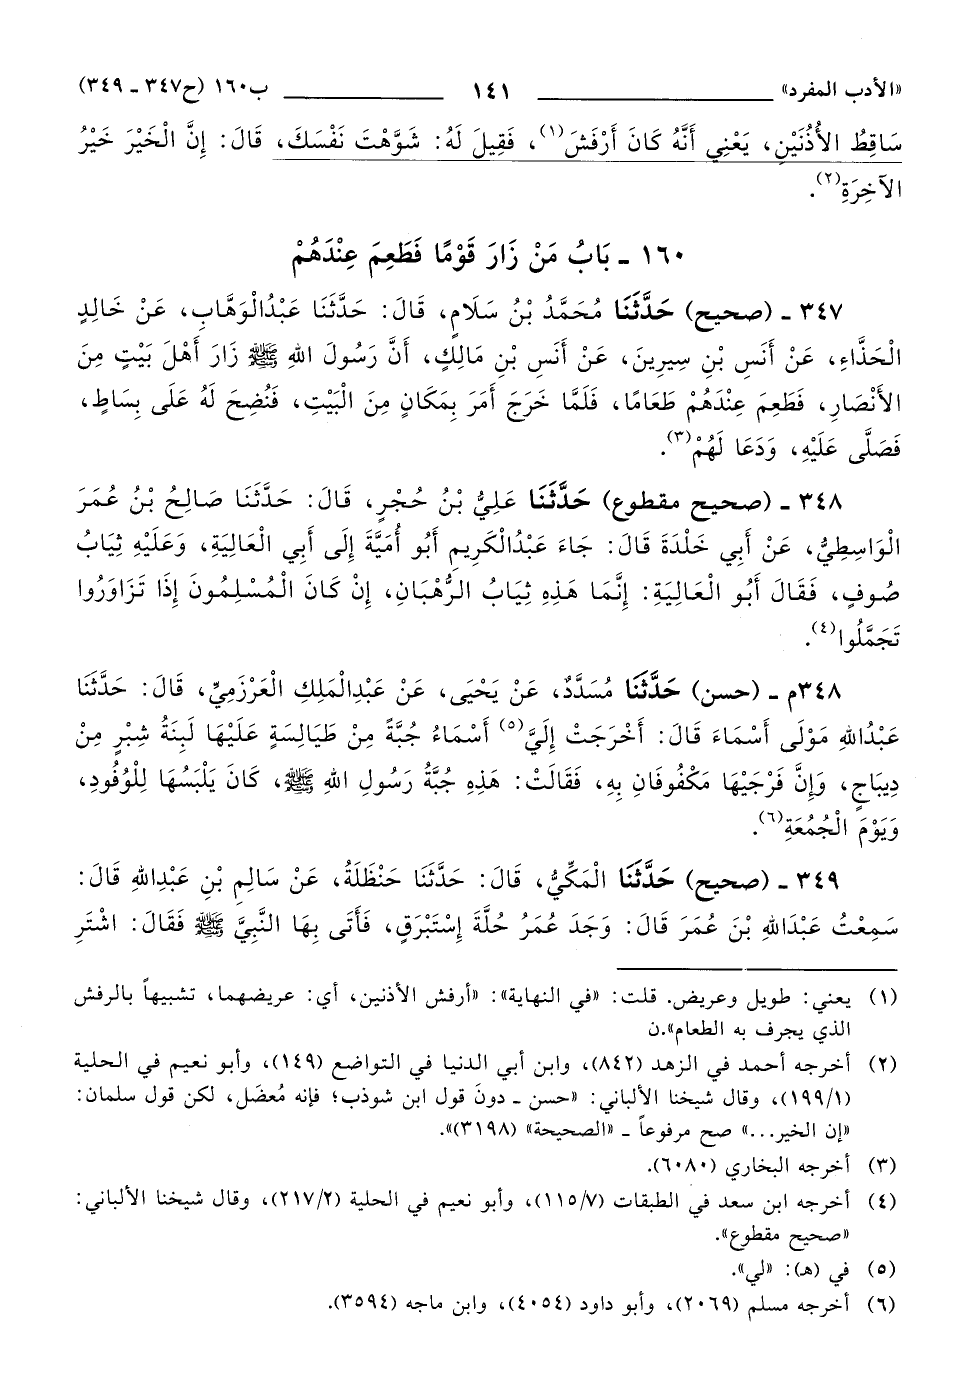 «الأدب المفرد» ١٤١ ب١٦٠ (ح٣٤٧ ـ ٣٤٩)
سَاقِطُ الأُذُنَيْنِ، يَعْنِي أَنَّهُ كَانَ أَرْفَشَ(١)، فَقِيلَ لَهُ: شَوَّهْتَ نَفْسَكَ، قَالَ: إِنَّ الْخَيْرَ خَيْرُ
الآخِرَةِ(٢).
١٦٠ ـ بَابُ مَنْ زَارَ قَوْمًا فَطَعِمَ عِنْدَهُمْ
٣٤٧ ـ (صحيح) حَدَّثَنَا مُحَمَّدُ بْنُ سَلَامٍ، قَالَ: حَدَّثَنَا عَبْدُالْوَهَّابِ، عَنْ خَالِدٍ
الْحَذَّاءِ، عَنْ أَنَسِ بْنِ سِيرِينَ، عَنْ أَنَسِ بْنِ مَالِكٍ، أَنَّ رَسُولَ اللهِ ﷺ زَارَ أَهْلَ بَيْتٍ مِنَ
الأَنْصَارِ، فَطَعِمَ عِنْدَهُمْ طَعَامًا، فَلَمَّا خَرَجَ أَمَرَ بِمَكَانٍ مِنَ الْبَيْتِ، فَنُضِحَ لَهُ عَلَى بِسَاطٍ،
فَصَلَّى عَلَيْهِ، وَدَعَا لَهُمْ(٣).
٣٤٨ ـ (صحيح مقطوع) حَدَّثَنَا عَلِيُّ بْنُ حُجْرٍ، قَالَ: حَدَّثَنَا صَالِحُ بْنُ عُمَرَ
الْوَاسِطِيُّ، عَنْ أَبِي خَلْدَةَ قَالَ: جَاءَ عَبْدُالْكَرِيمِ أَبُو أُمَيَّةَ إِلَى أَبِي الْعَالِيَةِ، وَعَلَيْهِ ثِيَابُ
صُوفٍ، فَقَالَ أَبُو الْعَالِيَةِ: إِنَّمَا هَذِهِ ثِيَابُ الرُّهْبَانِ، إِنْ كَانَ الْمُسْلِمُونَ إِذَا تَزَاوَرُوا
تَجَمَّلُوا(٤).
٣٤٨م ـ (حسن) حَدَّثَنَا مُسَدَّدٌ، عَنْ يَحْيَى، عَنْ عَبْدِالْمَلِكِ الْعَرْزَمِيِّ، قَالَ: حَدَّثَنَا
عَبْدُاللهِ مَوْلَى أَسْمَاءَ قَالَ: أَخْرَجَتْ إِلَيَّ(٥) أَسْمَاءُ جُبَّةً مِنْ طَيَالِسَةٍ عَلَيْهَا لَبِنَةُ شِبْرٍ مِنْ
دِيبَاجٍ، وَإِنَّ فَرْجَيْهَا مَكْفُوفَانِ بِهِ، فَقَالَتْ: هَذِهِ جُبَّةُ رَسُولِ اللهِ ﷺ، كَانَ يَلْبَسُهَا لِلْوُفُودِ،
وَيَوْمَ الْجُمُعَةِ(٦).
٣٤٩ ـ (صحيح) حَدَّثَنَا الْمَكِّيُّ، قَالَ: حَدَّثَنَا حَنْظَلَةُ، عَنْ سَالِمِ بْنِ عَبْدِاللهِ قَالَ:
سَمِعْتُ عَبْدَاللهِ بْنَ عُمَرَ قَالَ: وَجَدَ عُمَرُ حُلَّةَ إِسْتَبْرَقٍ، فَأَتَى بِهَا النَّبِيَّ ﷺ فَقَالَ: اشْتَرِ
(١) يعني: طويل وعريض. قلت: «في النهاية»: «أرفش الأذنين، أي: عريضهما، تشبيهاً بالرفش
الذي يجرف به الطعام».ن
(٢) أخرجه أحمد في الزهد (٨٤٢)، وابن أبي الدنيا في التواضع (١٤٩)، وأبو نعيم في الحلية
(١/١٩٩)، وقال شيخنا الألباني: «حسن ـ دونَ قول ابن شوذب؛ فإنه مُعضَل، لكن قول سلمان:
«إن الخير...» صح مرفوعاً ـ «الصحيحة» (٣١٩٨)».
(٣) أخرجه البخاري (٦٠٨٠).
(٤) أخرجه ابن سعد في الطبقات (٧/١١٥)، وأبو نعيم في الحلية (٢/٢١٧)، وقال شيخنا الألباني:
«صحيح مقطوع».
(٥) في (هـ): «لي».
(٦) أخرجه مسلم (٢٠٦٩)، وأبو داود (٤٠٥٤)، وابن ماجه (٣٥٩٤).